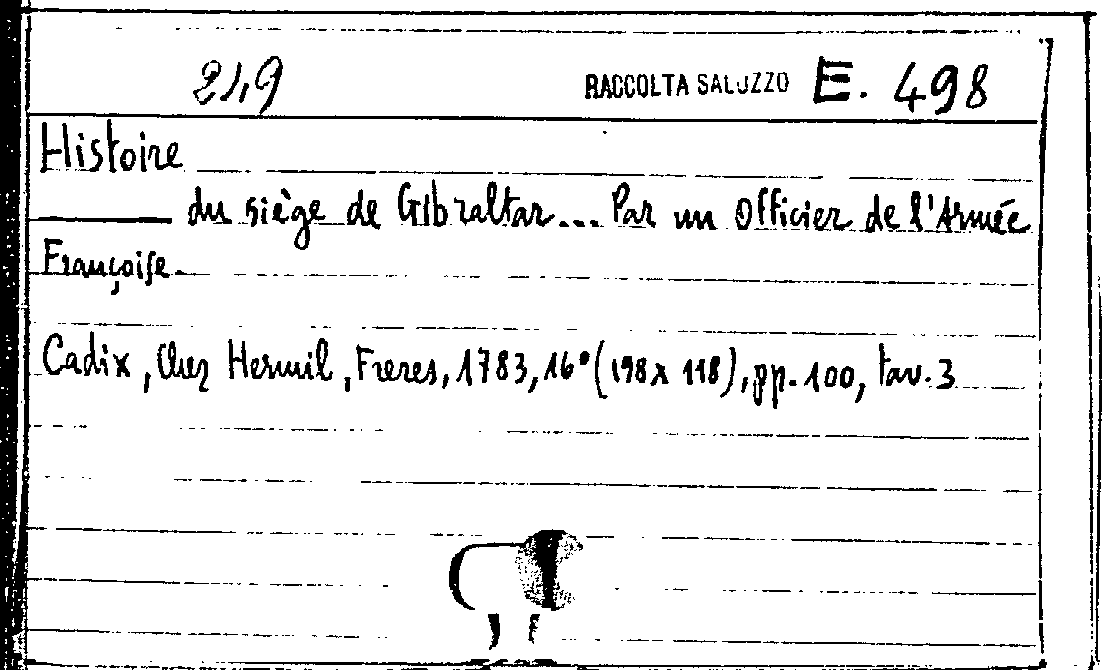 249 RACCOLTA SALUZZO E. 498
Histoire
du siège de Gibraltar... Par un Officier de l'Armée
Françoise.
Cadix, Chez Hermil, Freres, 1783, 16° (198 x 118), pp. 100, tav. 3